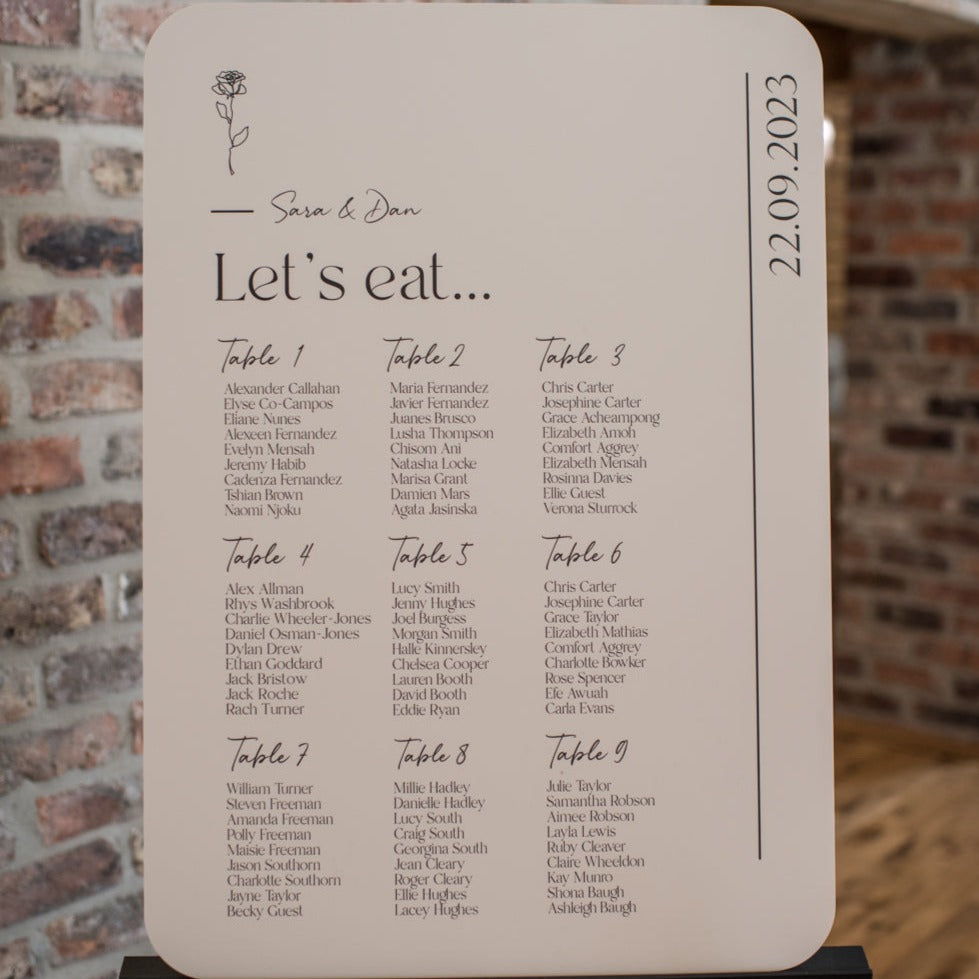 Sara & Dan
Let's eat...
22.09.2023
Table 1
Alexander Callahan
Elyse Co-Campos
Eliane Nunes
Alexeen Fernandez
Evelyn Mensah
Jeremy Habib
Cadenza Fernandez
Tshian Brown
Naomi Njoku
Table 2
Maria Fernandez
Javier Fernandez
Juanes Brusco
Lusha Thompson
Chisom Ani
Natasha Locke
Marisa Grant
Damien Mars
Agata Jasinska
Table 3
Chris Carter
Josephine Carter
Grace Acheampong
Elizabeth Amoh
Comfort Aggrey
Elizabeth Mensah
Rosinna Davies
Ellie Guest
Verona Sturrock
Table 4
Alex Allman
Rhys Washbrook
Charlie Wheeler-Jones
Daniel Osman-Jones
Dylan Drew
Ethan Goddard
Jack Bristow
Jack Roche
Rach Turner
Table 5
Lucy Smith
Jenny Hughes
Joel Burgess
Morgan Smith
Halle Kinnersley
Chelsea Cooper
Lauren Booth
David Booth
Eddie Ryan
Table 6
Chris Carter
Josephine Carter
Grace Taylor
Elizabeth Mathias
Comfort Aggrey
Charlotte Bowker
Rose Spencer
Efe Awuah
Carla Evans
Table 7
William Turner
Steven Freeman
Amanda Freeman
Polly Freeman
Maisie Freeman
Jason Southorn
Charlotte Southorn
Jayne Taylor
Becky Guest
Table 8
Millie Hadley
Danielle Hadley
Lucy South
Craig South
Georgina South
Jean Cleary
Roger Cleary
Ellie Hughes
Lacey Hughes
Table 9
Julie Taylor
Samantha Robson
Aimee Robson
Layla Lewis
Ruby Cleaver
Claire Wheeldon
Kay Munro
Shona Baugh
Ashleigh Baugh